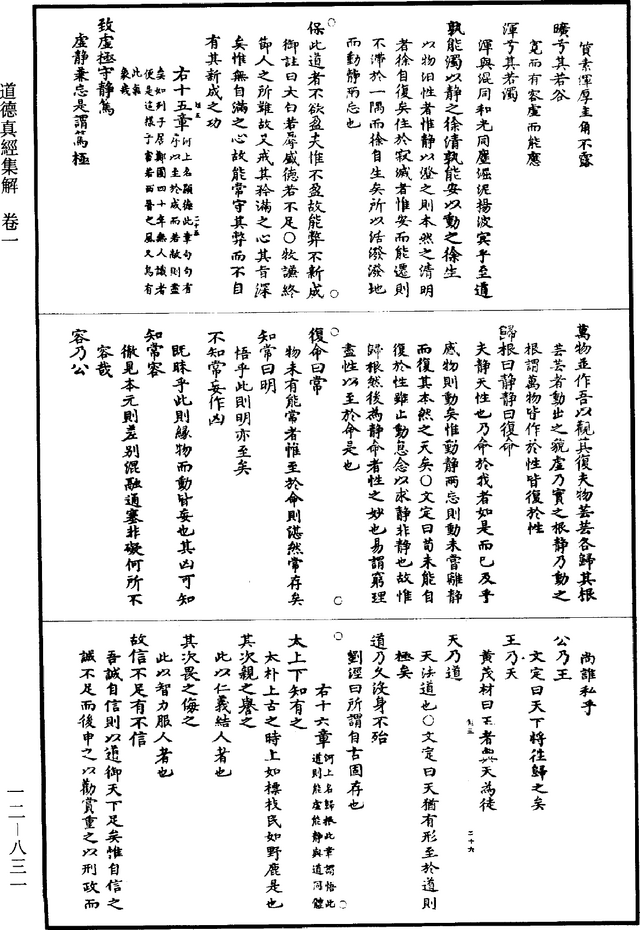 質素渾厚圭角不露
曠兮其若谷
寬而有容虛而能應
渾兮其若濁
渾與混同和光同塵淈泥揚波實乎至道
孰能濁以靜之徐清孰能安以動之徐生
以物汩性者惟靜以澄之則本然之清明
者徐自復矣住於寂滅者惟安而能遷則
不滯於一隅而徐自生矣所以活潑潑地
而動靜兩忘也
保此道者不欲盈夫惟不盈故能弊不新成
御註曰大白若辱盛德若不足〇牧謙終
節人之所難故又戒其矜滿之心其旨深
矣惟無自滿之心故能常守其弊而不自
有其新成之功
右十五章河上名顯德此章句句有
序以至於成而若故則盡
矣如列子居鄭圃四十年無人識者
便是這樣子當若西晉之風又烏有
此氣
象哉
致虛極守靜篤
虛靜兼忘是謂篤極
萬物並作吾以觀其復夫物芸芸各歸其根
芸芸者動出之貌虛乃實之根靜乃動之
根謂萬物皆作於性皆復於性
歸根曰靜靜曰復命
夫靜天性也乃命於我者如是而已及乎
感物則動矣惟動靜兩忘則動未嘗離靜
而復其本然之天矣〇文定曰苟未能自
復於性雖止動息念以求靜非靜也故惟
歸根然後為靜命者性之妙也易謂窮理
盡性以至於命是也
復命曰常
物未有能常者惟至於命則湛然常存矣
知常曰明
悟乎此則明亦至矣
不知常妄作凶
既昧乎此則緣物而動皆妄也其凶可知
知常容
徹見本元則差別混融通塞非礙何所不
容哉
容乃公
尚誰私乎
公乃王
文定曰天下將往歸之矣
王乃天
黃茂材曰王者與天為徒
天乃道
天法道也〇文定曰天猶有形至於道則
極矣
道乃久沒身不殆
劉經曰所謂自古固存也
右十六章河上名歸根此章謂悟此
道則能虛能靜與道同體
太上下知有之
太朴上古之時上如標枝民如野鹿是也
其次親之譽之
此以仁義結人者也
其次畏之侮之
此以智力服人者也
故信不足有不信
吾誠自信則以道御天下足矣惟自信之
誠不足而後申之以勸賞重之以刑政而
道德真經集解　卷一
一二—八三一